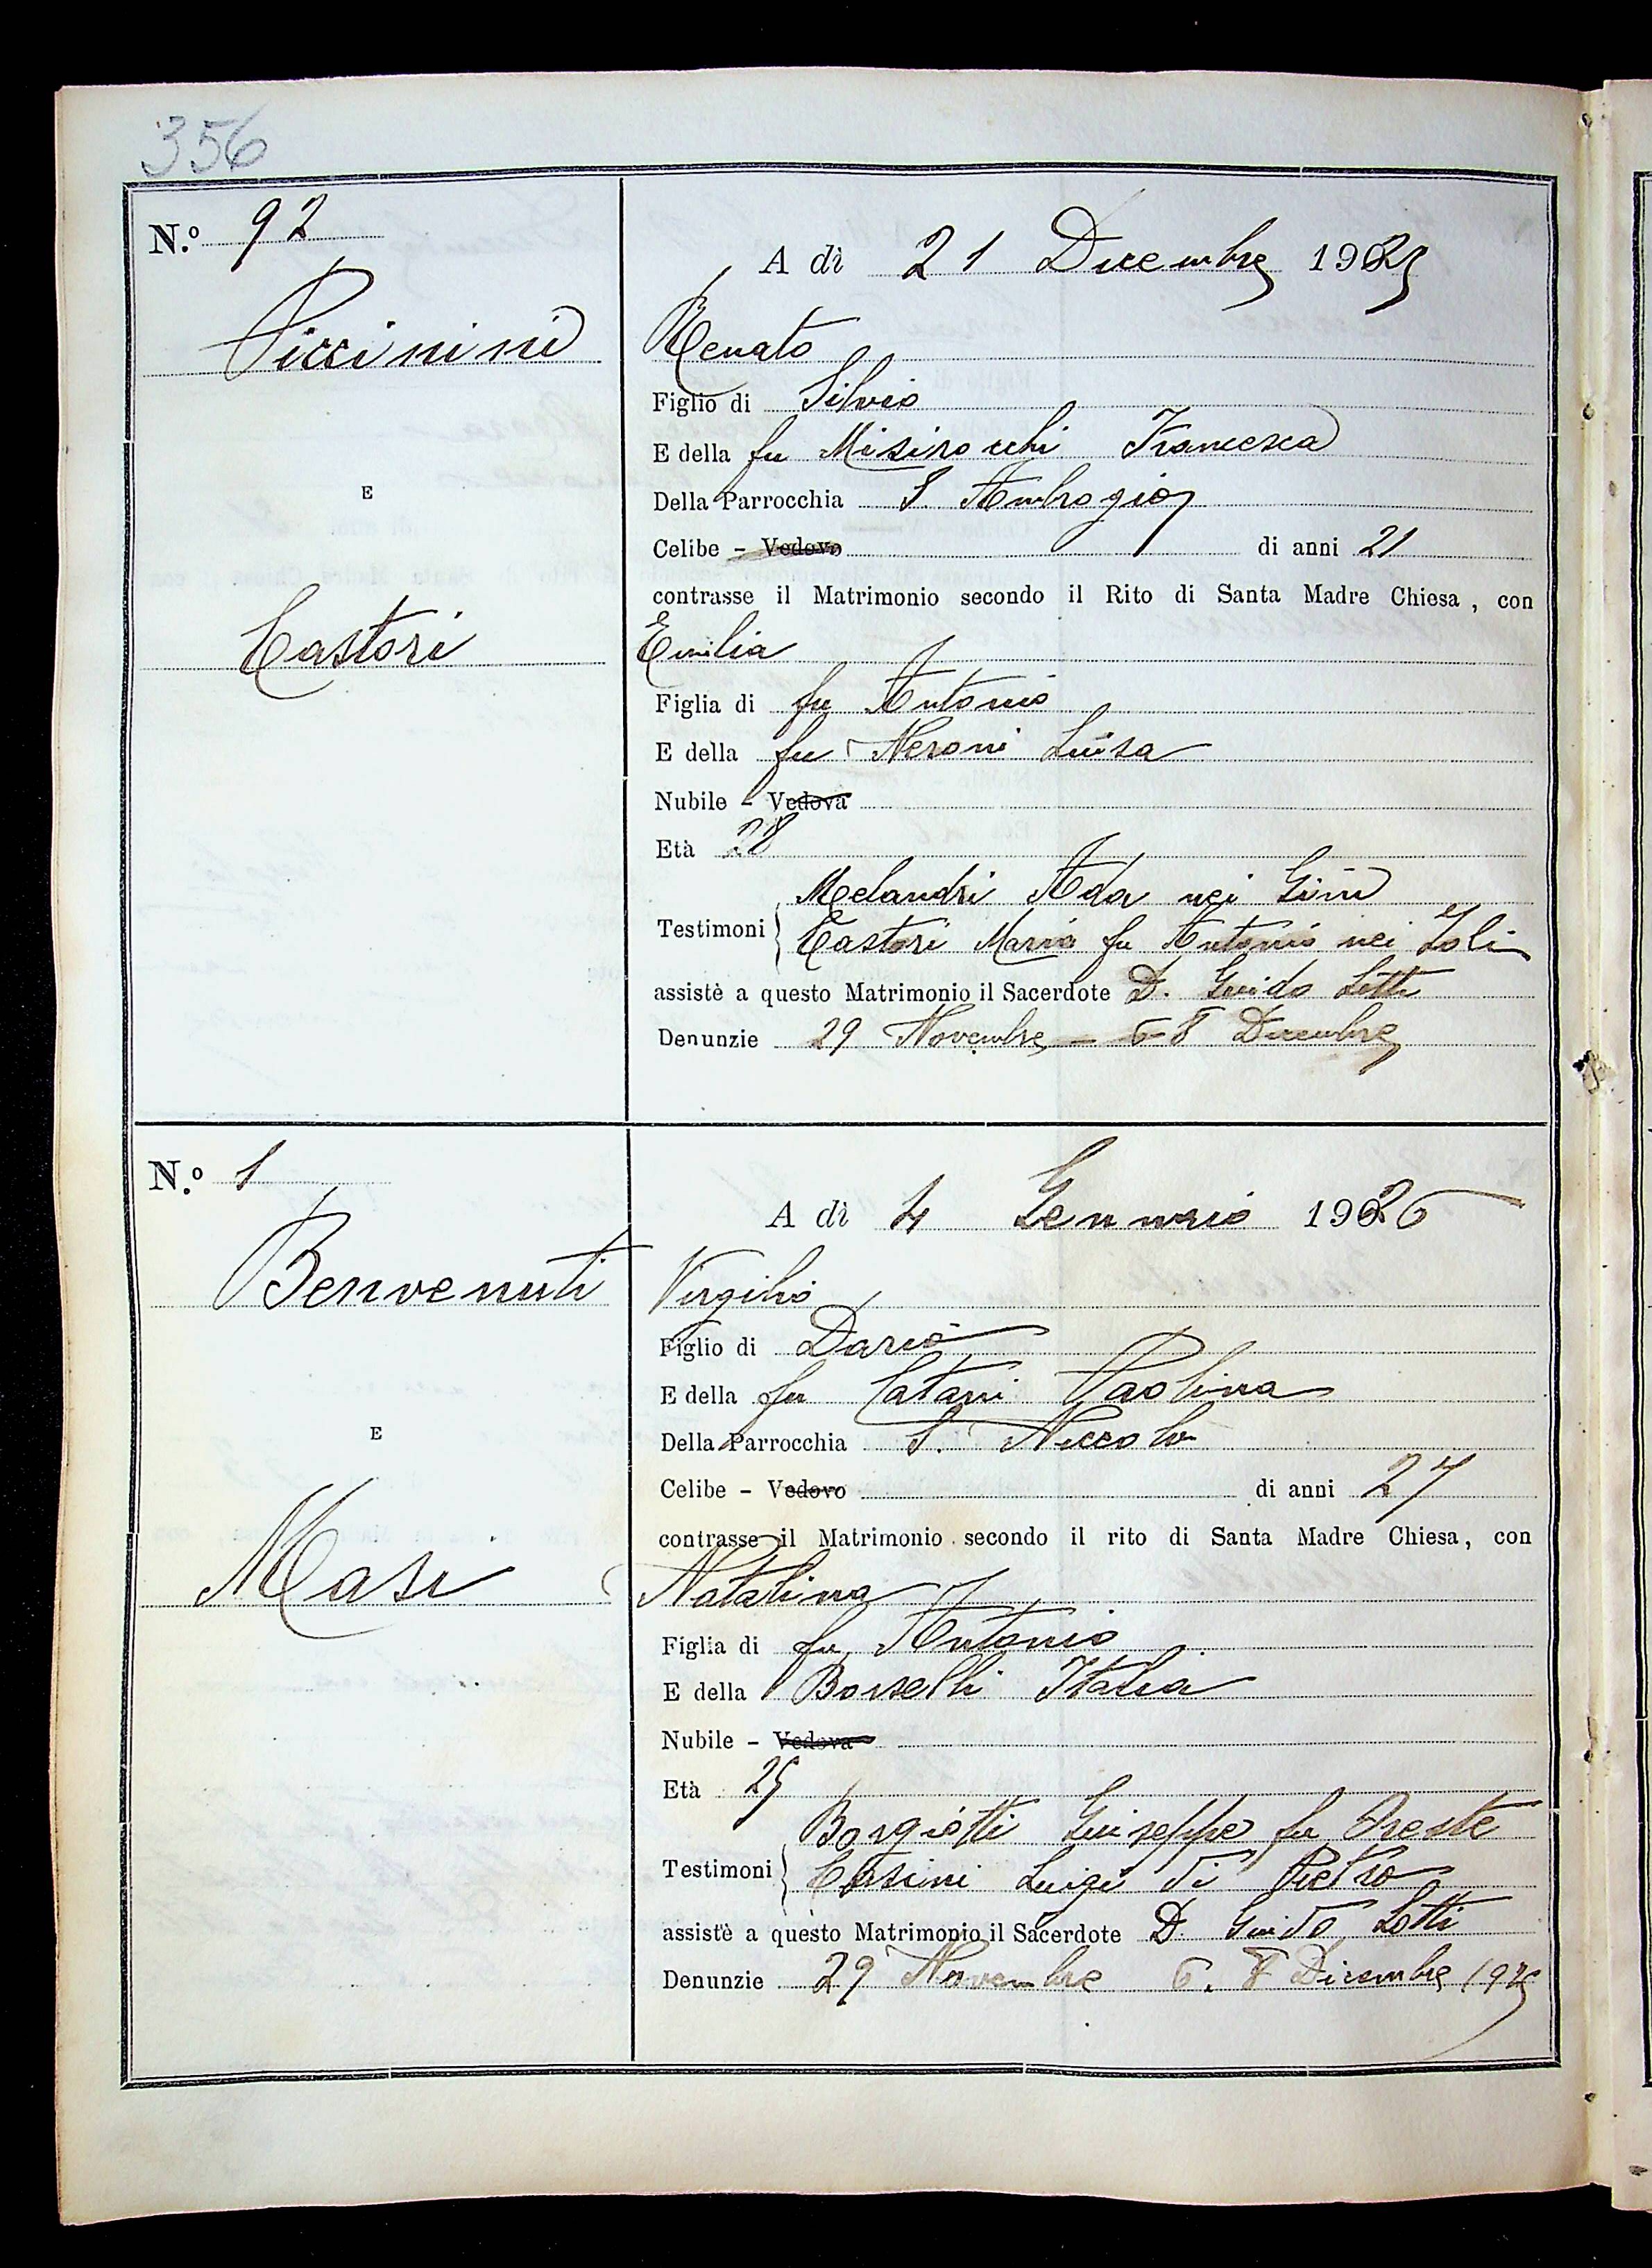 356
N.º 92
A dì 21 Dicembre 1925
Piccinini
Renato
Figlio di Silvio
E della fu Misirocchi Francesca
E
Della Parrocchia S. Ambrogio
Celibe - Vedovo di anni 21
contrasse il Matrimonio secondo il Rito di Santa Madre Chiesa, con
Castori
Emilia
Figlia di fu Antonio
E della fu Neroni Luisa
Nubile - Vedova
Età 28
Melandri Ada nei Gini
Testimoni
Castori Maria fu Antonio nei Zoli
assistè a questo Matrimonio il Sacerdote D. Guido Lotti
Denunzie 29 Novembre - 6-8 Dicembre
N.º 1
A dì 4 Gennaio 1926
Benvenuti
Virgilio
Figlio di Dario
E della fu Catani Paolina
E
Della Parrocchia S. Niccolo
Celibe - Vedovo di anni 27
contrasse il Matrimonio secondo il rito di Santa Madre Chiesa, con
Masi
Natalina
Figlia di fu Antonio
E della Borselli Italia
Nubile - Vedova
Età 25
Borgiotti Giuseppe fu Oreste
Testimoni
Casini Luigi di Pietro
assistè a questo Matrimonio il Sacerdote D. Guido Lotti
Denunzie 29 Novembre 6. 8 Dicembre 1925